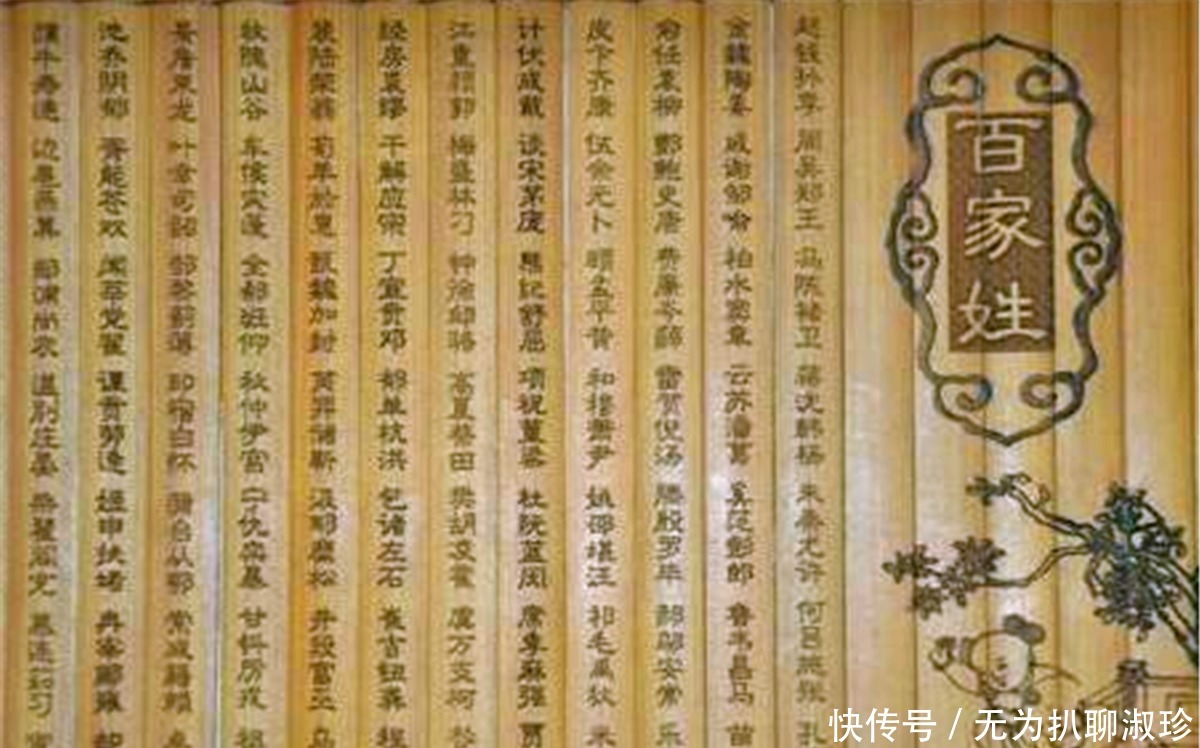 百家姓
赵钱孙李 周吴郑王 冯陈褚卫 蒋沈韩杨 朱秦尤许 何吕施张 孔
金魏陶姜 戚谢邹喻 柏水窦章 云苏潘葛 奚范彭郎 鲁韦昌马
俞任袁柳 酆鲍史唐 费廉岑薛 雷贺倪汤 滕殷罗毕 郝邬安常 乐
皮卞齐康 伍余元卜 顾孟平黄 和穆萧尹 姚邵堪汪 祁毛禹狄 米
计伏成戴 谈宋茅庞 熊纪舒屈 项祝董梁 杜阮蓝闵 席季麻强 贾
江童颜郭 梅盛林刁 钟徐邱骆 高夏蔡田 樊胡凌霍 虞万支柯
经房裘缪 干解应宗 丁宣贲邓 郁单杭洪 包诸左石 崔吉钮龚
裴陆荣翁 荀羊於惠 甄魏加封 芮羿储靳 汲邴糜松 井段富巫 乌
牧隗山谷 车侯宓蓬 全郗班仰 秋仲伊宫 宁仇栾暴 甘钭厉戎 祖
景詹束龙 叶幸司韶 郜黎蓟薄 印宿白怀 蒲台从鄂 咸籍赖
池乔阴郁 胥能苍双 闻莘党翟 谭贡劳逄 姬申扶堵 冉宰郦雍
濮牛寿通 边扈燕冀 郏浦尚农 温别庄晏 柴瞿阎充 慕连茹习
快传号 / 无为扒聊淑珍